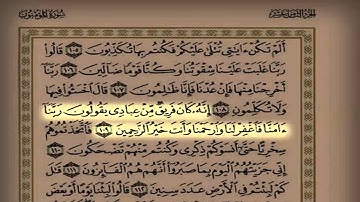 سورة المؤمنون
الجزء الثامن عشر
ألم تكن ءايتي تتلى عليكم فكنتم بها تكذبون ١٠٥ قالوا
ربنا غلبت علينا شقوتنا وكنا قوما ضالين ١٠٦ ربنا
أخرجنا منها فإن عدنا فإنا ظلمون ١٠٧ قال اخسئوا فيها
ولا تكلمون ١٠٨ إنه كان فريق من عبادي يقولون ربنا
ءامنا فاغفر لنا وارحمنا وأنت خير الرحمين ١٠٩ فاتخذتموهم
سخريا حتى أنسوكم ذكري وكنتم منهم تضحكون ١١٠
إني جزيتهم اليوم بما صبروا أنهم هم الفائزون ١١١ قل
كم لبثتم في الأرض عدد سنين ١١٢ قالوا لبثنا يوما أو بعض